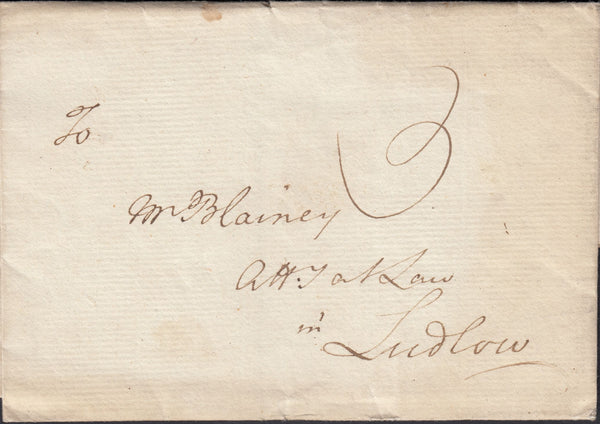 To
3
Mr Blainey
Atty at Law
in
Ludlow